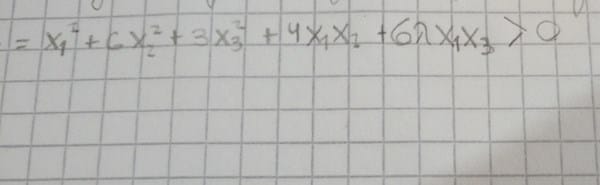 = x₁² + 6x₂² + 3x₃² + 4x₁x₂ + 6λx₁x₃ > 0